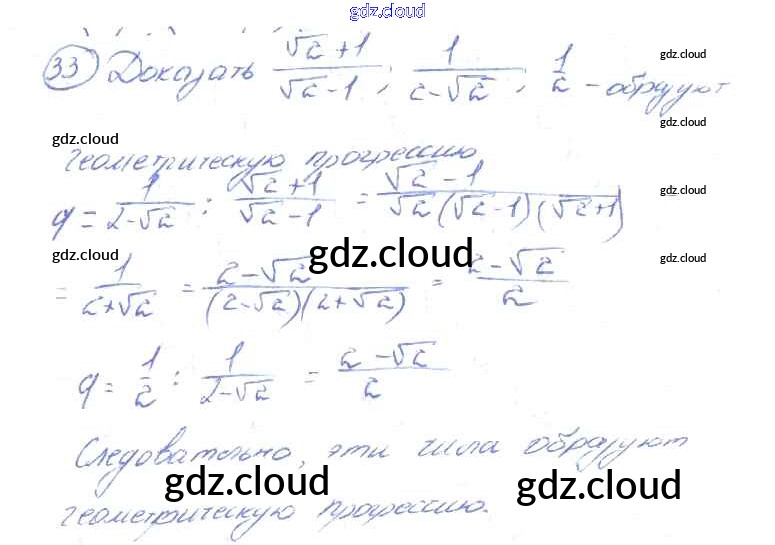 gdz.cloud
33) Доказать (√2+1)/(√2-1); 1/(2-√2); 1/2 – образуют
gdz.cloud
gdz.cloud
gdz.cloud
геометрическую прогрессию
q = 1/(2-√2) : (√2+1)/(√2-1) = (√2-1)/(√2(√2-1)(√2+1))
gdz.cloud
gdz.cloud
gdz.cloud
gdz.cloud
= 1/(2+√2) = (2-√2)/((2-√2)(2+√2)) = (2-√2)/2
q = 1/2 : 1/(2-√2) = (2-√2)/2
Следовательно, эти числа образуют
gdz.cloud
gdz.cloud
геометрическую прогрессию.